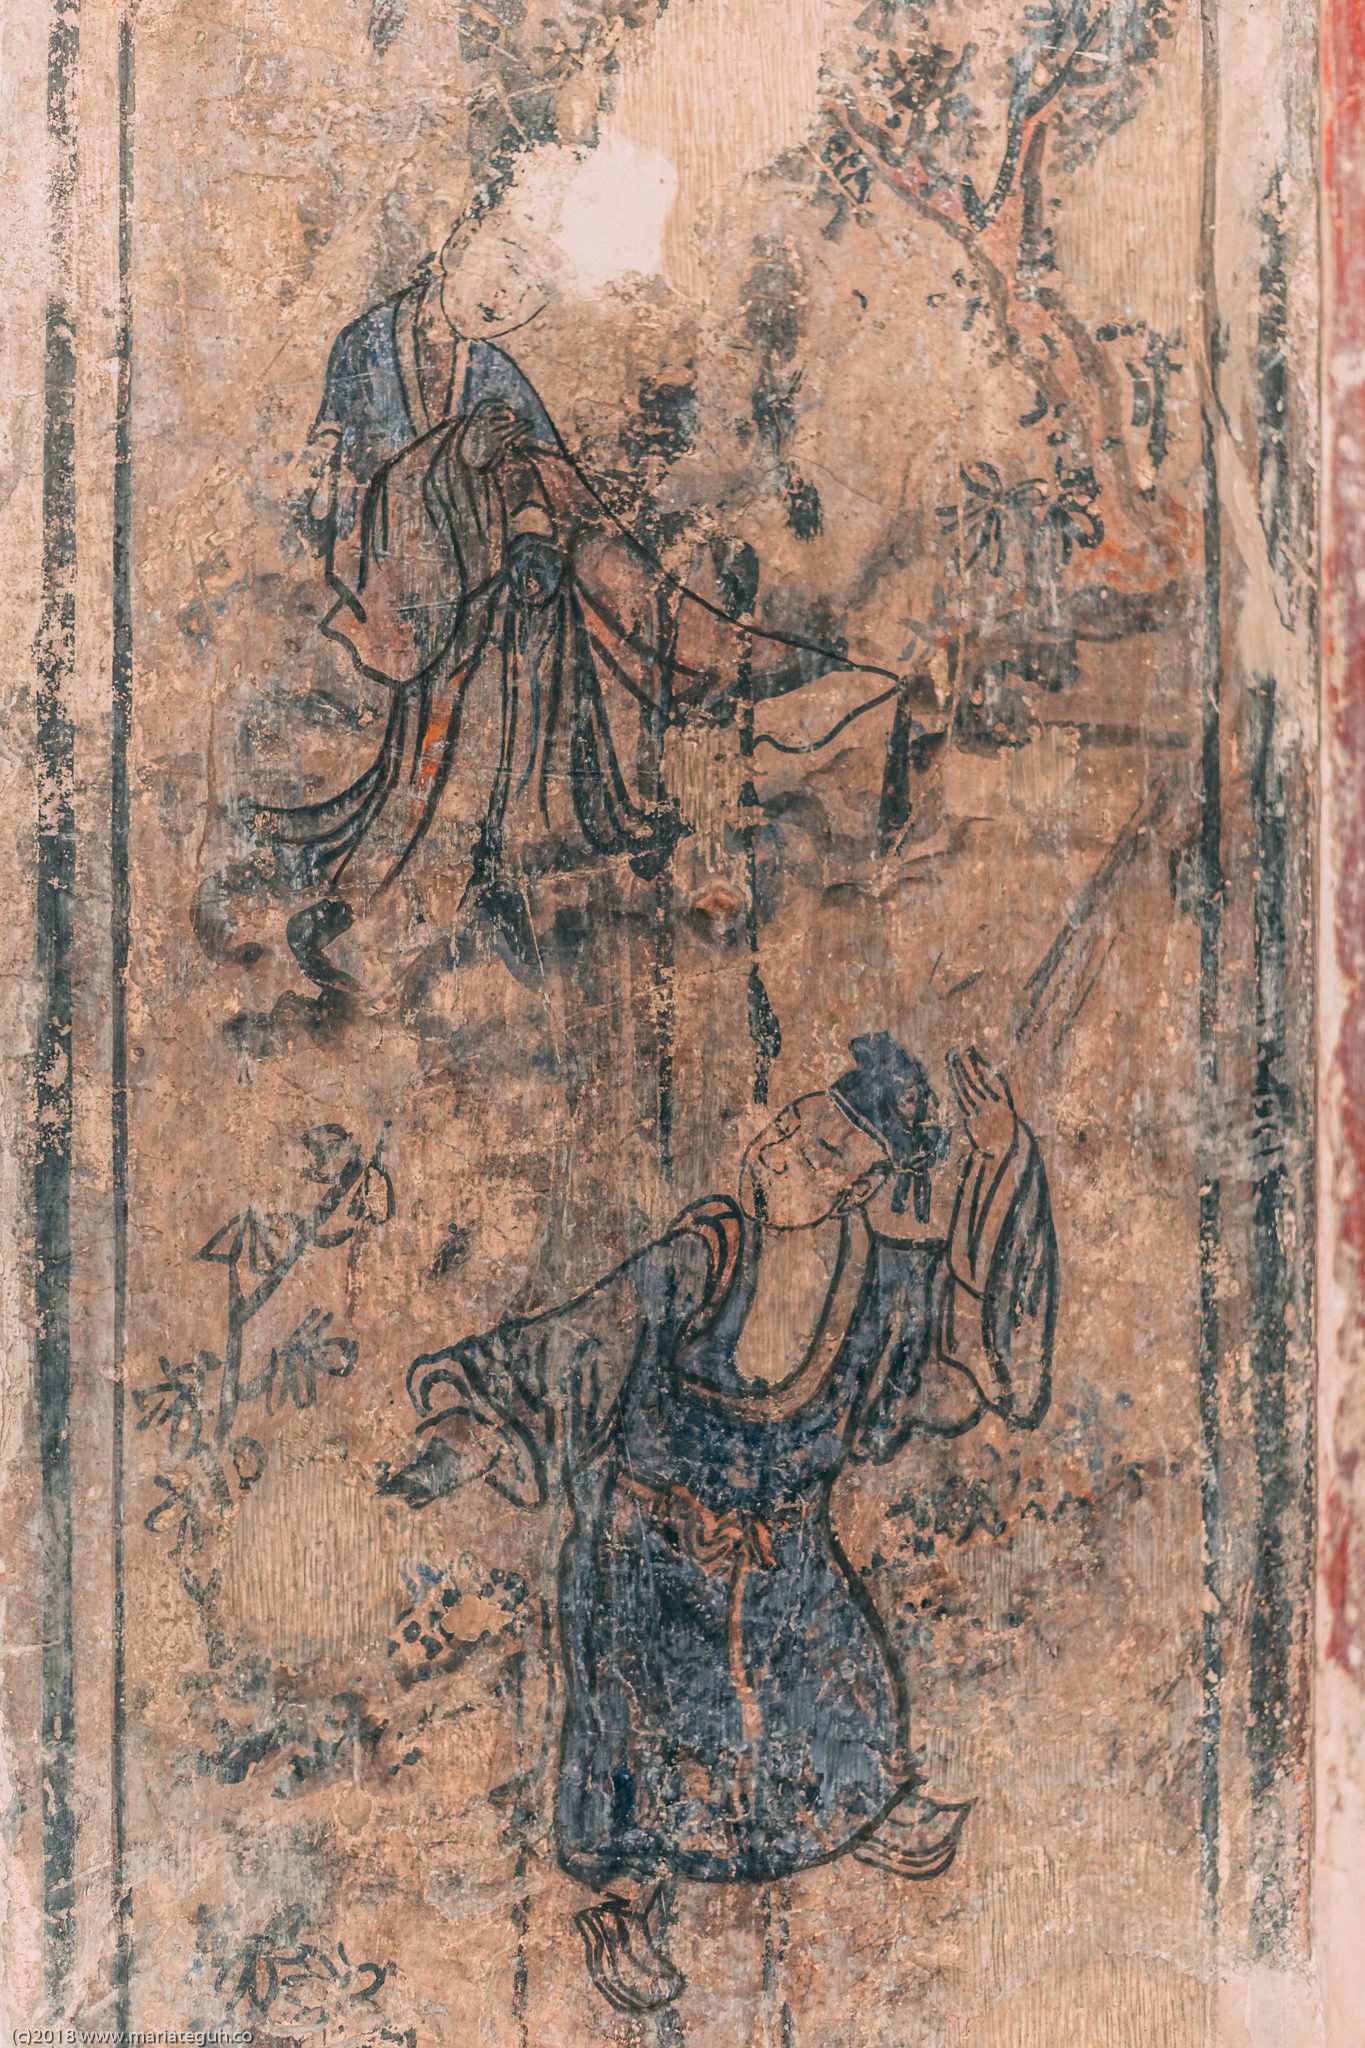 (c)2018 www.mariateguh.co